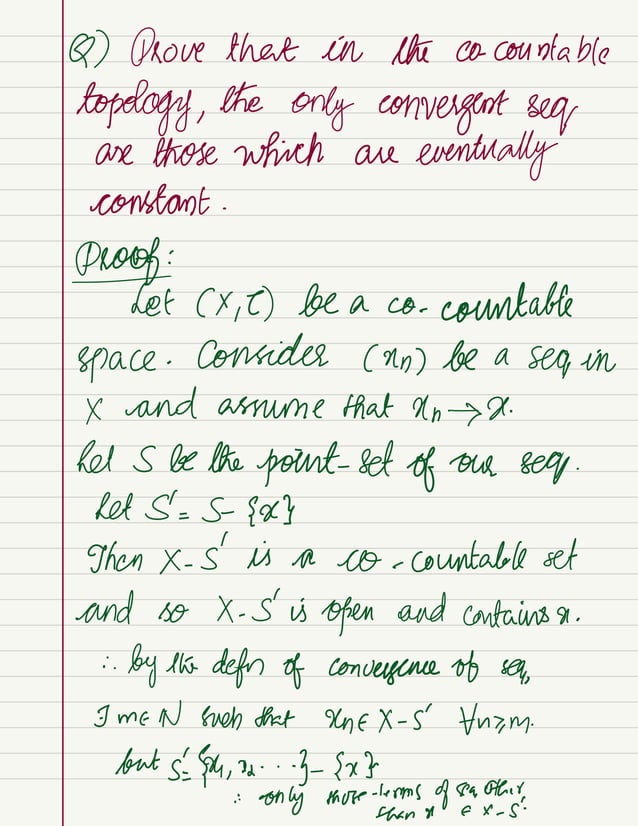 Q) Prove that in the co-countable
topology, the only convergent seq
are those which are eventually
constant.
Proof:
Let (X,τ) be a co-countable
space. Consider (xn) be a seq in
X and assume that xn→x.
Let S be the point-set of our seq.
Let S' = S-{x}
Then X-S' is a co-countable set
and so X-S' is open and contains x.
∴ by the defn of convergence of seq,
∃ m∈N such that xn∈ X-S' ∀n≥m.
but S'= {x1, x2 . . .}-{x}
∴ only those-terms of seq other
than x ∈ X-S'.